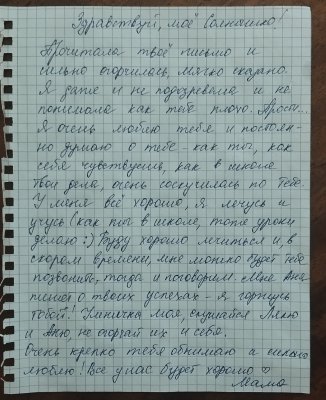 Здравствуй, моё Солнышко!
Прочитала твоё письмо и
сильно огорчилась, мягко сказано.
Я даже и не подозревала и не
понимала как тебе плохо. Прости...
Я очень люблю тебя и постоян-
но думаю о тебе - как ты, как
себя чувствуешь, как в школе
твои дела, очень соскучилась по тебе.
У меня всё хорошо, я лечусь и
учусь (как ты в школе, тоже уроки
делаю :) Буду хорошо учиться и, в
скором времени, мне можно будет тебе
позвонить, тогда и поговорим. Мне Аня
пишет о твоих успехах - я горжусь
тобой! Умничка моя, слушайся
и Аню, не огорчай их и себя.
Очень крепко тебя обнимаю и сильно
люблю! Всё у нас будет хорошо ♡
Мама